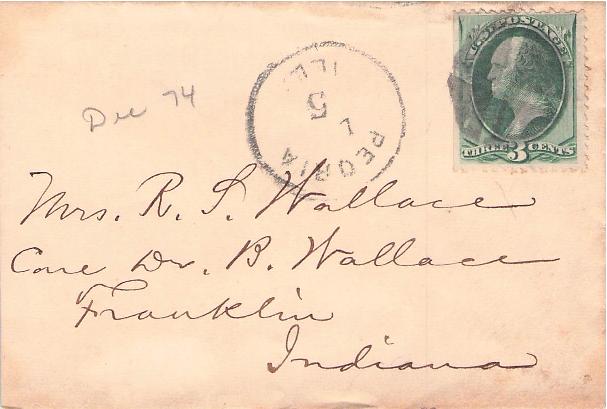 U.S. POSTAGE
THREE 3 CENTS
PEORIA ILL.
5
Dec 74
Mrs. R. S. Wallace
Care Dr. B. Wallace
Franklin
Indiana